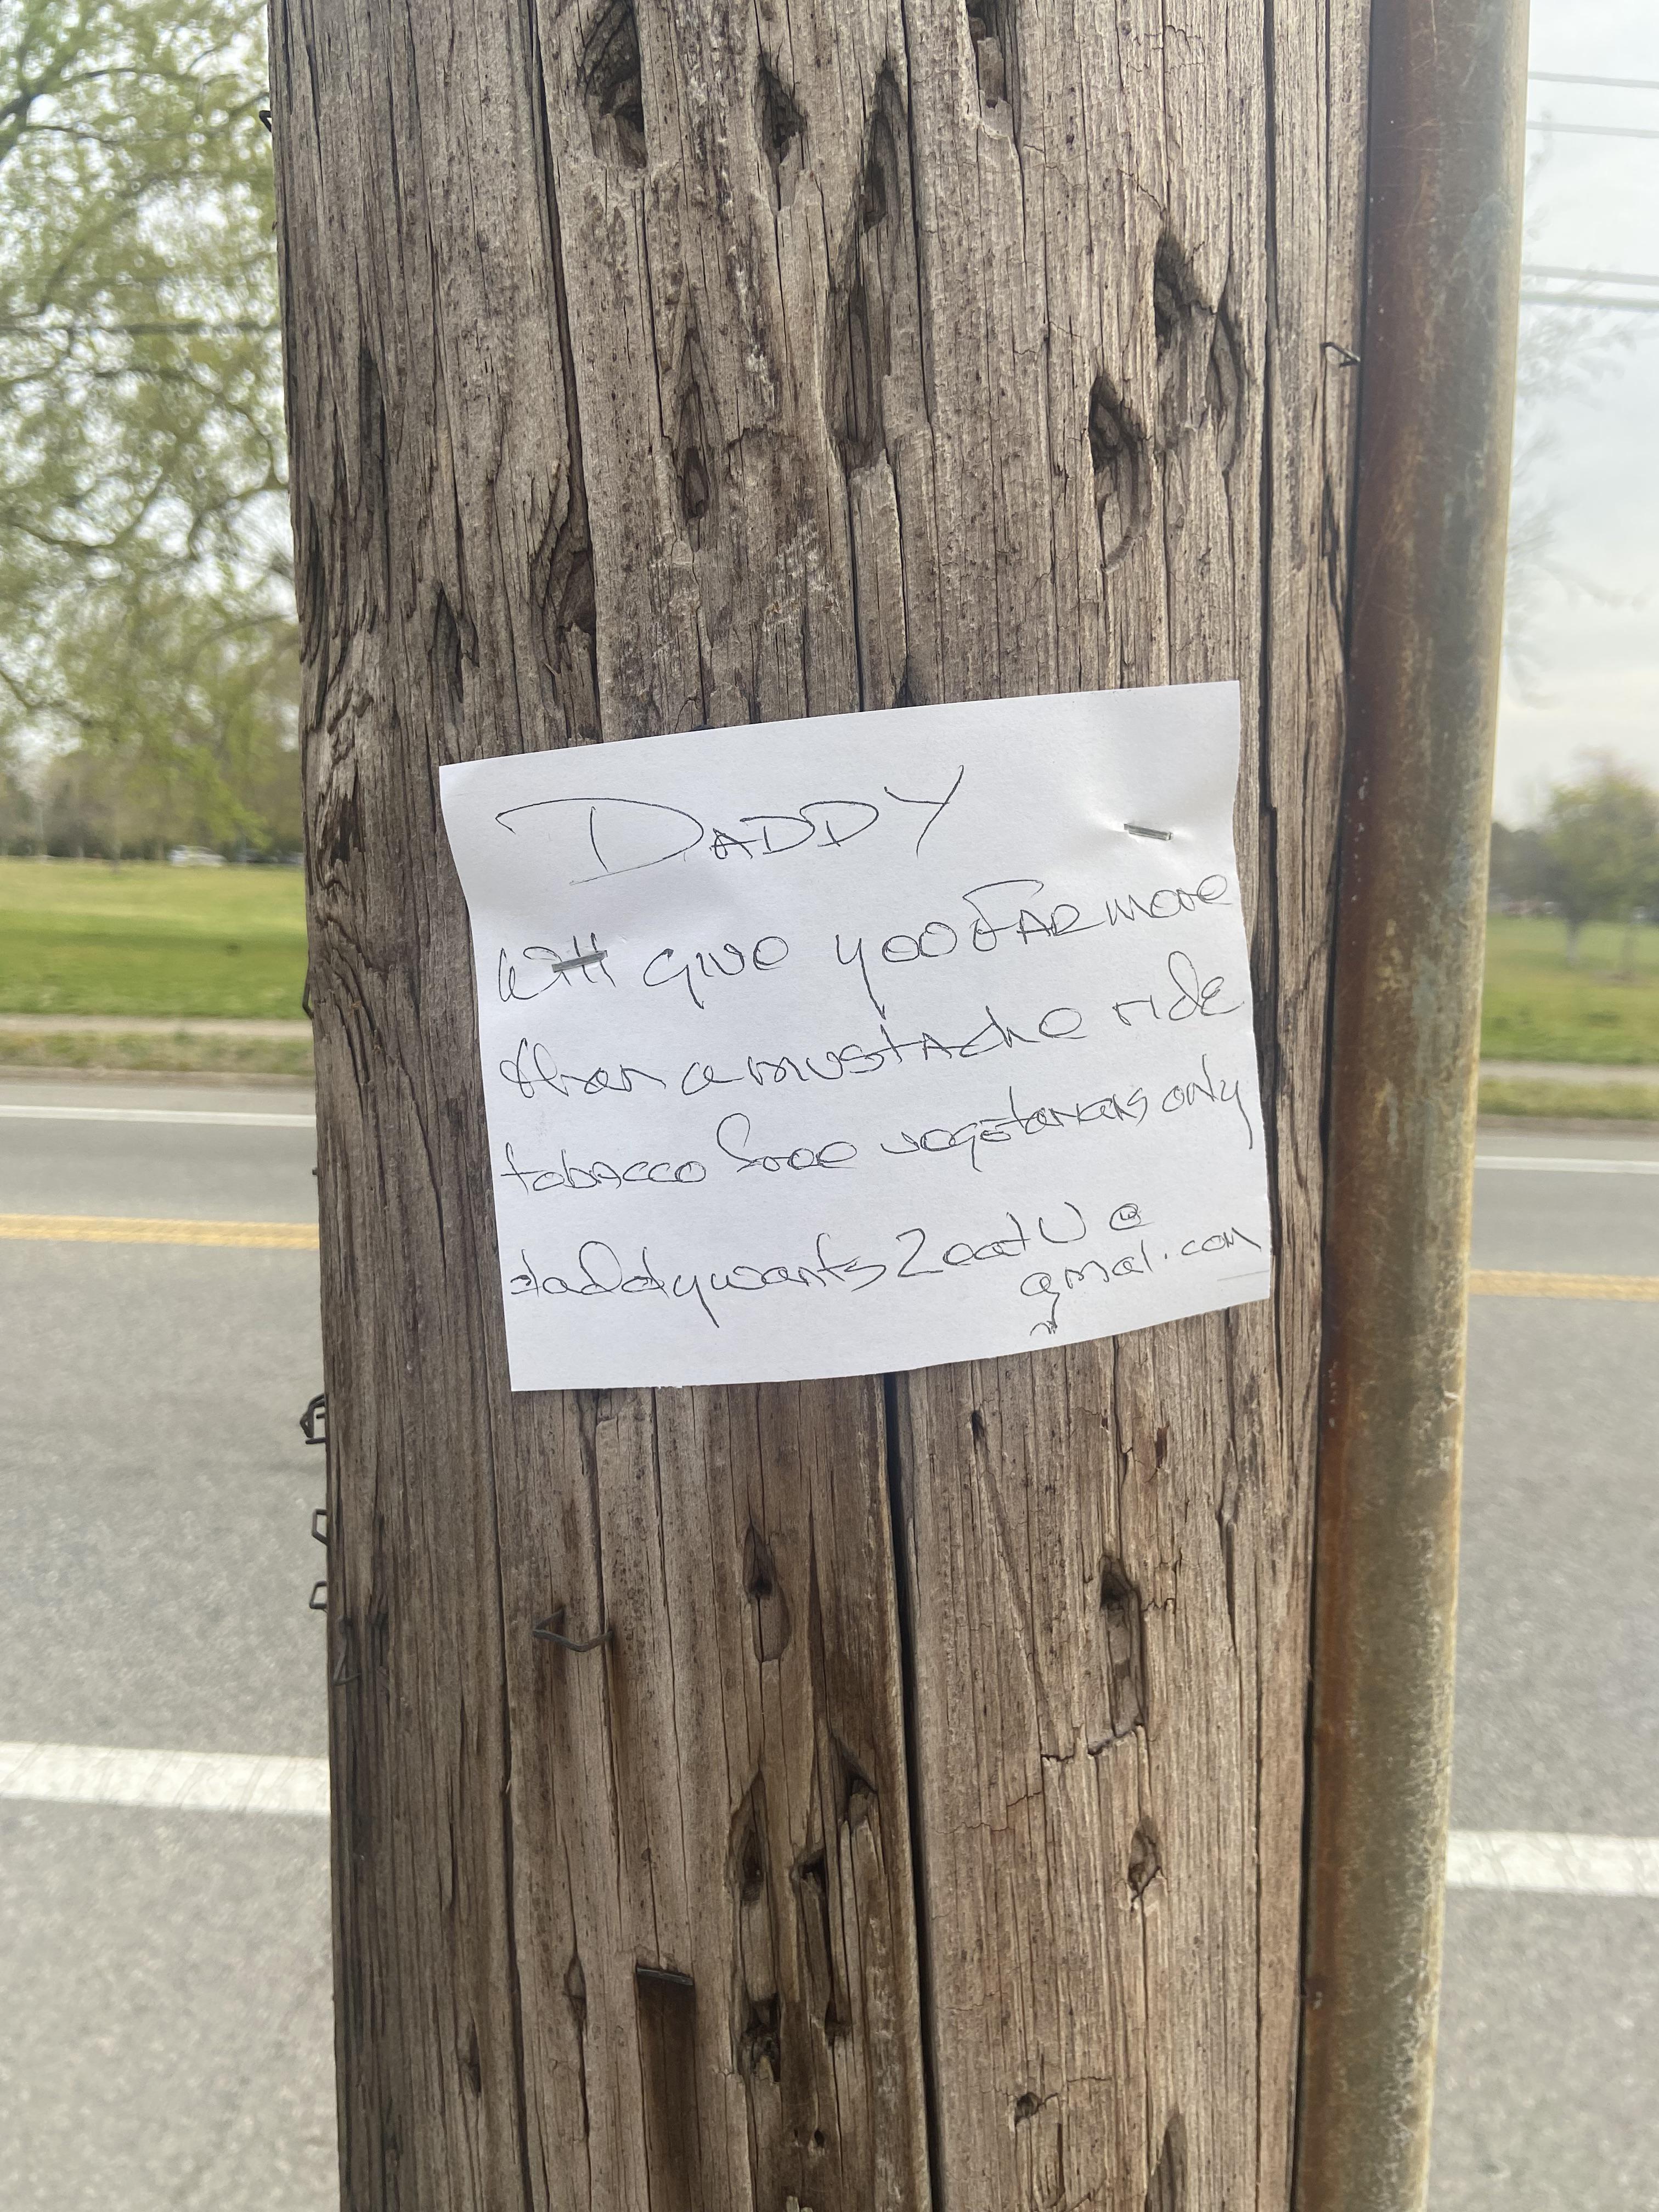 DADDY
Will give you FAR more
than a mustache ride
tobacco free vegetarians only
daddywants2eatU@
gmail.com